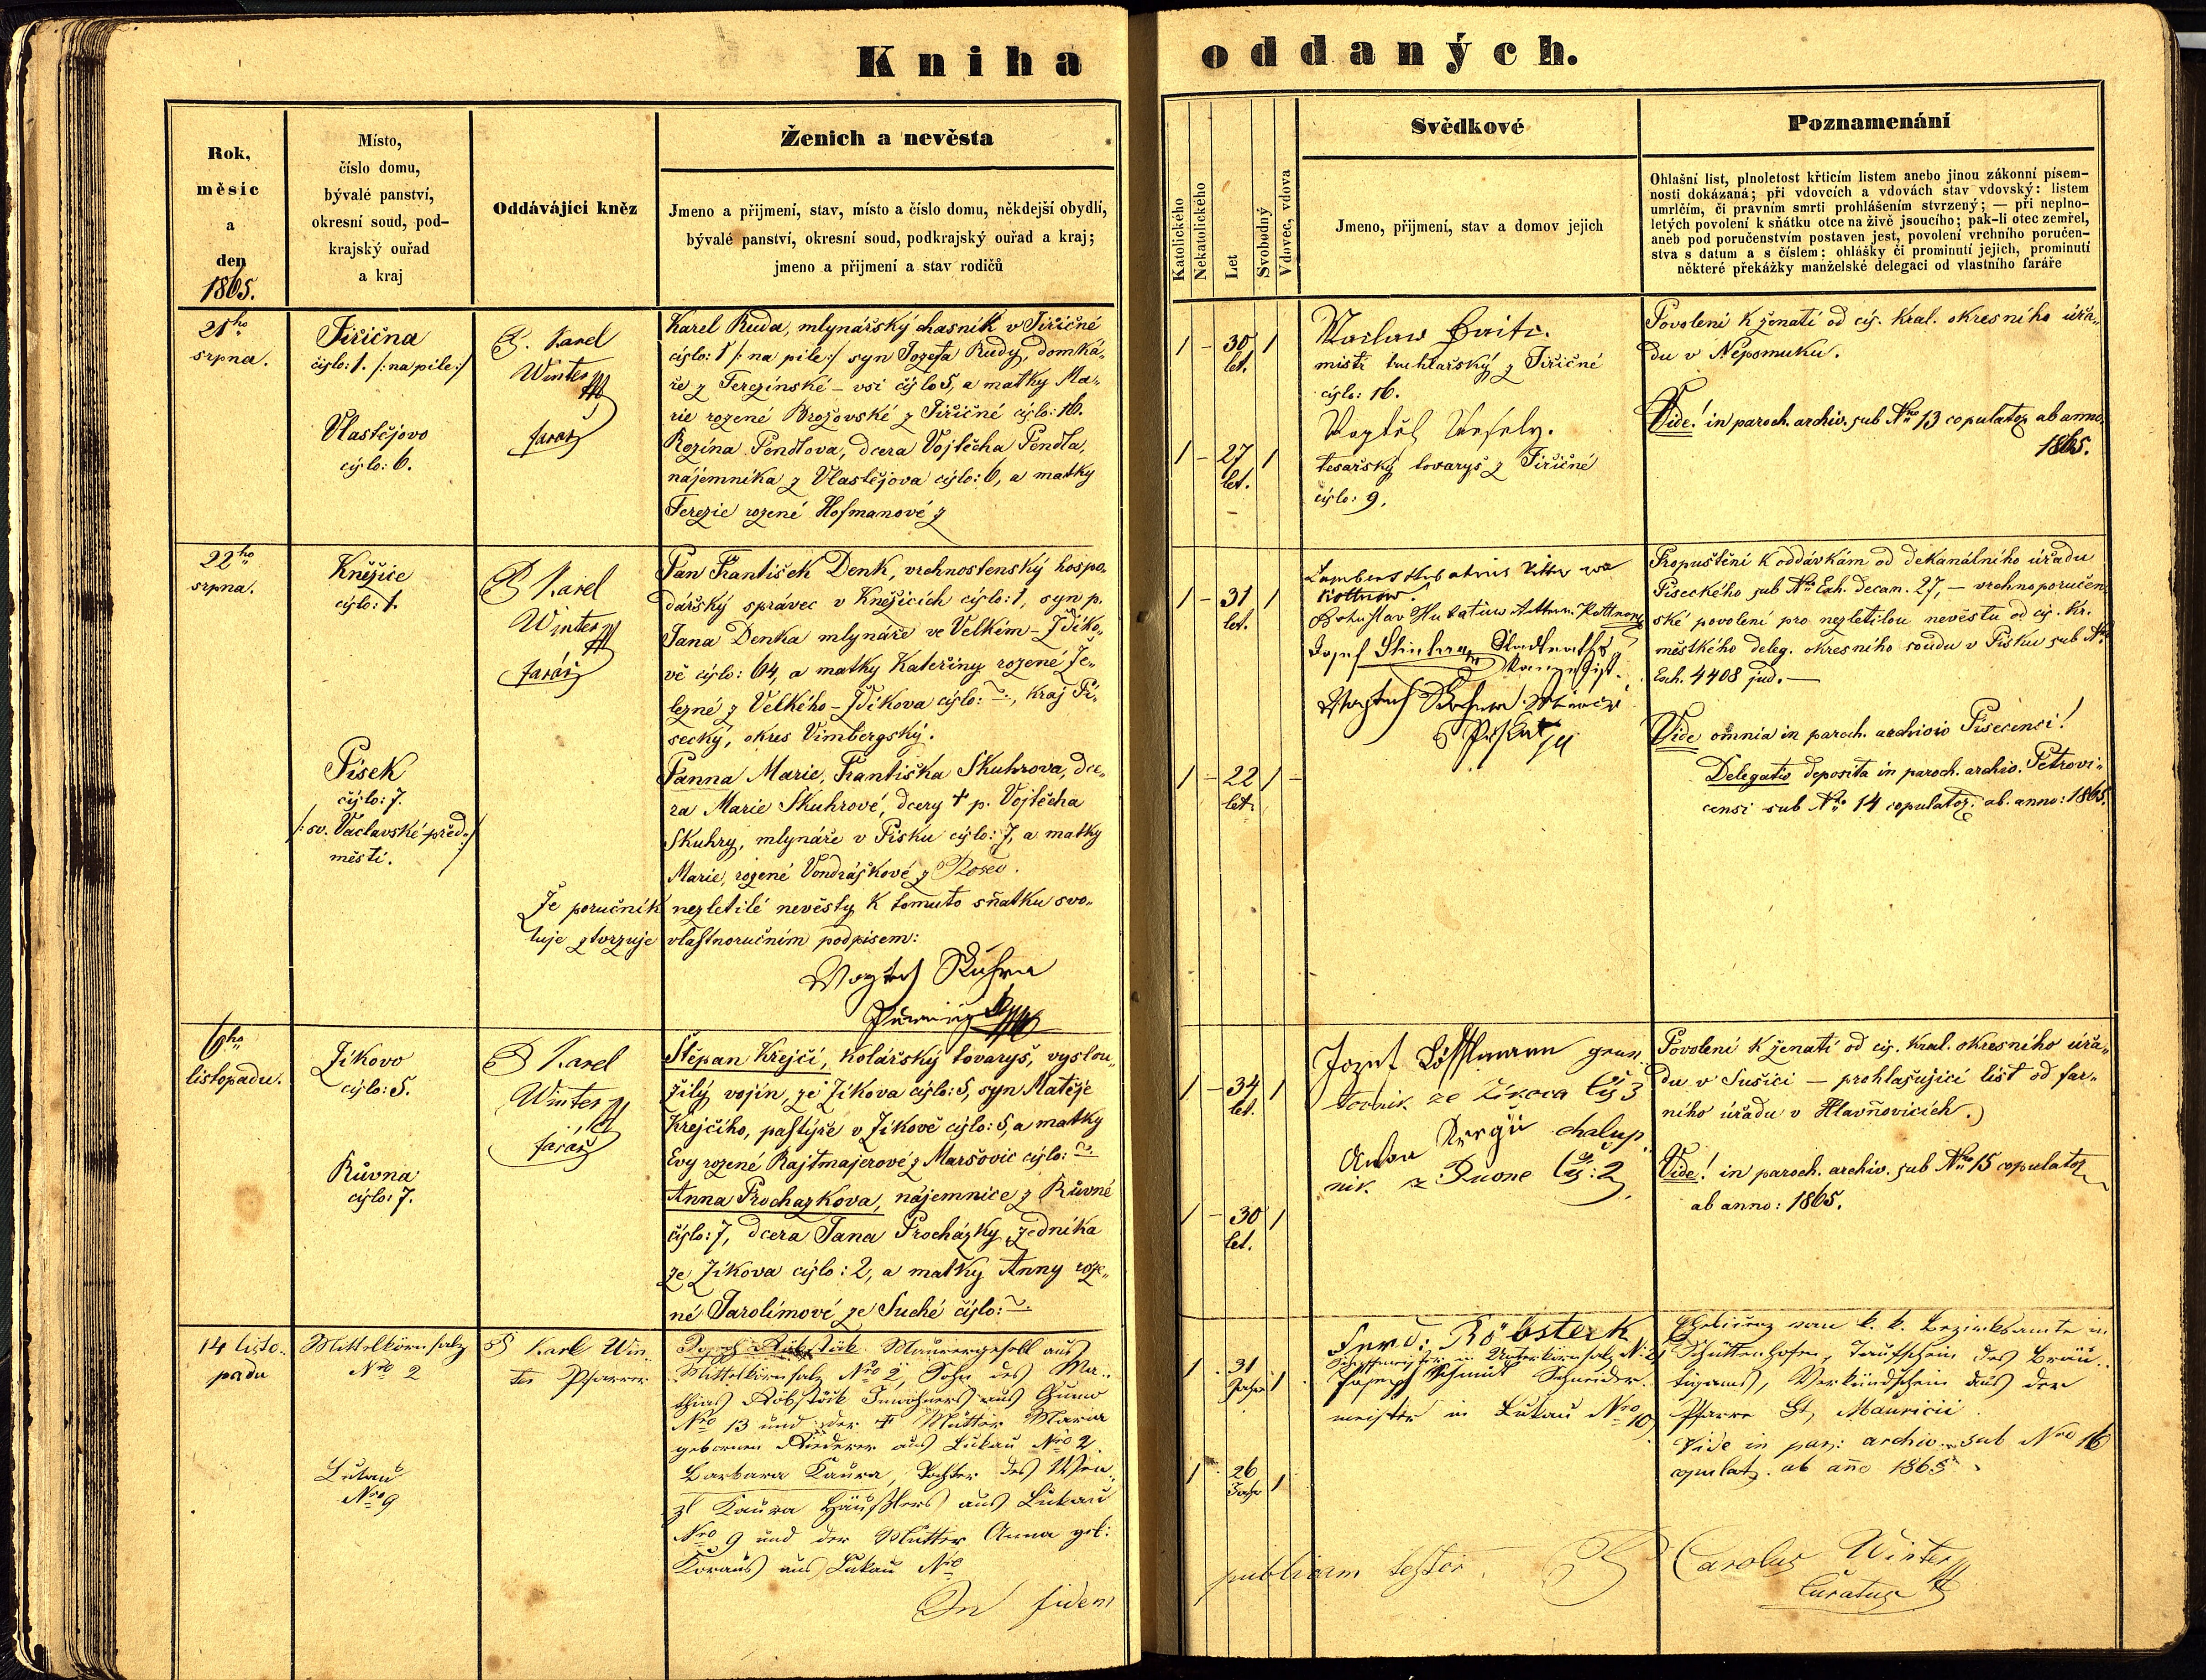 Kniha oddaných.
Rok,
měsíc
a
den
1865.
Místo,
číslo domu,
bývalé panství,
okresní soud, pod-
krajský ouřad
a kraj
Oddávající kněz
Ženich a nevěsta
Jmeno a přijmení, stav, místo a číslo domu, někdejší obydlí,
bývalé panství, okresní soud, podkrajský ouřad a kraj;
jmeno a přijmení a stav rodičů
Katolického
Nekatolického
Let
Svobodný
Vdovec, vdova
Svědkové
Jmeno, přijmení, stav a domov jejich
Poznamenání
Ohlašní list, plnoletost křticím listem anebo jinou zákonní písem-
nosti dokázaná; při vdovcích a vdovách stav vdovský: listem
umrlčím, či právním smrti prohlášením stvrzený; — při neplno-
letých povolení k sňátku otce na živě jsoucího; pak-li otec zemřel,
aneb pod poručenstvím postaven jest, povolení vrchního poručen-
stva s datum a s číslem; ohlášky či prominutí jejich, prominutí
některé překážky manželské delegaci od vlastního faráře
21ho
srpna.
Jiřična
číslo: 1. /: na pile :/
Vlastějovo
číslo: 6.
P. Karel
Winter
farář
Karel Ruda, mlynářský chasník v Jiřičné
číslo: 1 /: na pile :/ syn Jozefa Rudy, domká„
ře z Terezínské – vsi číslo 5, a matky Ma„
rie rozené Brožovské z Jiřičné číslo: 16.
Rozina Pendlova, dcera Vojtěcha Pendla,
nájemníka z Vlastějova číslo: 6, a matky
Terezie rozené Hofmanové z
1 – 30 let. 1
1 – 27 let. 1
mistr truhlařský z Jiřičné
číslo: 16.
tesařský tovaryš z Jiřičné
číslo: 9.
Povolení k ženatí od cís. král. okresního úřa„
du v Nepomuku.
Vide! in paroch. archiv. sub Nro 13 copulator. ab anno
1865.
22ho
srpna.
Kněžice
číslo: 1.
Písek
číslo: 7.
/: sv. Václavské-před- :/
městí.
P. Karel
Winter
farář
Pan František Denk, vrchnostenský hospo„
dářský správec v Kněžicích číslo: 1, syn p.
Jana Denka mlynáře ve Velkém – Zdíko„
vě číslo: 64, a matky Kateřiny rozené Že„
lezné z Velkého – Zdíkova číslo: ~, kraj Pí„
secký, okres Vimbergský.
Panna Marie, Františka Skuhrova, dce„
ra Marie Skuhrové, dcery † p. Vojtěcha
Skuhry, mlynáře v Písku číslo: 7, a matky
Marie, rozené Vondráškové z
Že poručník nezletilé nevěsty k tomuto sňatku svo„
luje ztvrzuje vlastnoručním podpisem:
1 – 31 let. 1
1 – 22 let. 1 –
Propuštění k oddávkám od děkanálního úřadu
Píseckého sub Nro Exh. decan. 27, – vrchnoporučen„
ské povolení pro nezletilou nevěstu od cís. kr.
městkého deleg. okresního soudu v Písku sub Nro
Exh. 4408 jud. —
Vide omnia in paroch. archivio Piscensi!
Delegatio deposita in paroch. archiv. Petrovi„
censi sub Nro 14 copulator. ab. anno: 1865.
6ho
listopadu.
Žikovo
číslo: 5.
Růvna
číslo: 7.
P. Karel
Winter
farář
Štěpan Krejčí, kolářský tovaryš, vyslou„
žilý vojín, ze Žikova číslo: 5, syn Matěje
Krejčího, pastýře v Žikově číslo: 5, a matky
Evy rozené Rajtmajerové z Maršovic číslo: ~
Anna Prochazkova, nájemnice z Růvné
číslo: 7, dcera Jana Procházky zedníka
ze Žikova číslo: 2, a matky Anny roze„
né Jarolímové ze Suché číslo: ~
1 – 34 let. 1
1 – 30 let. 1
Jozef Löfflmann grun
tovnik ze Žikova čís 3
chalup
nik
Povolení k ženatí od cís. král. okresního úřa„
du v Sušici — prohlašující list od far„
ního úřadu v Hlavňovicích.
Vide! in paroch. archiv. sub Nro 15 copulator
ab anno: 1865.
14 listo„
padu
Mittelkörnsalz
Nro 2
Lukau
Nro 9
P Karl Win„
ter Pfarrer
Joseph Röbstöck Maurergesell aus
Mittelkörnsalz Nro 2, Sohn des Ma„
thias Röbstöck Inwohners aus
Nro 13 und der † Mutter Maria
gebornen Riederer aus Lukau Nro 2.
Barbara Kaura, Tochter des Wen„
zl Kaura Häuslers aus Lukau
Nro 9 und der Mutter Anna geb:
aus Lukau Nro
1 31 Jahr 1
1 26 Jahr 1
Ferd: Röbsteck
in Unterkörnsalz N: 2
Joseph Schmid Schneider„
meister in Lukau Nro 10
Ehelicenz vom k. k. Bezirksamte in
Schüttenhofen, Taufschein des Bräu„
tigams, Verkündschein aus der
Pfarre St. Mauricii
Vide in par: archiv. sub Nro 16
copulat. ab ano 1865
In fidem publicam testor. P Carolus Winter
Curatus